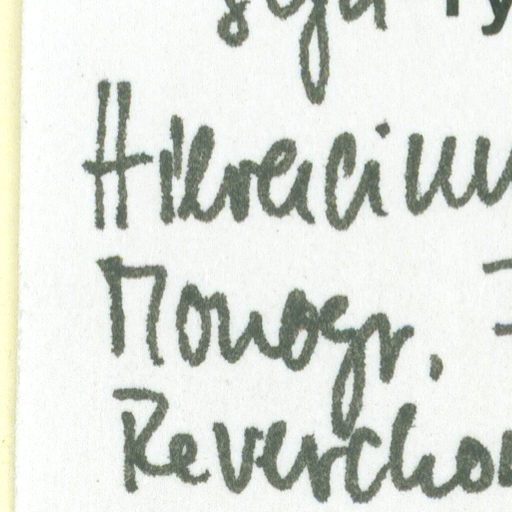 Hieracium
Monogr.
Reverchon